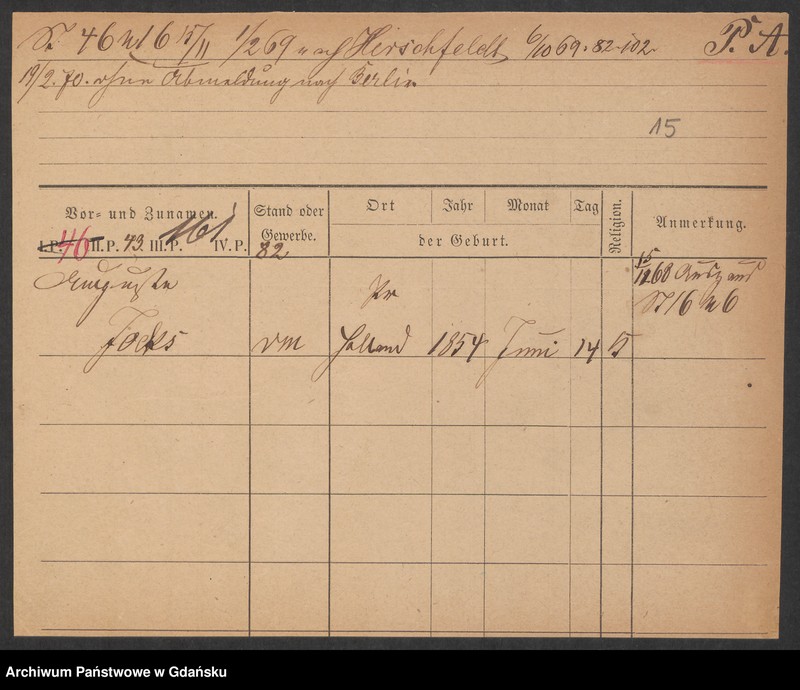 St 46 N 16 15/11 1/2 69 nach Hirschfeldt 6/10 69. 82-102. P. A.
19/2. 70. ohne Abmeldung nach Berlin
15
Vor- und Zunamen. Stand oder Gewerbe. Ort Jahr Monat Tag der Geburt. Religion. Anmerkung.
I.P. 46 II.P. 43. III.P. 161 IV.P.
82
Auguste Pr 15/11 68 Ausz aus
St 16 N 6
Jocks DM Holland 1854 Juni 14
Archiwum Państwowe w Gdańsku